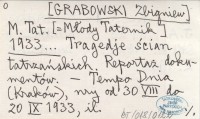 0
[GRABOWSKI Zbigniew]
M. Tat. [= Młody Taternik]
1933... Tragedje ścian
tatrzańskich. Reportaż doku-
mentów. — Tempo Dnia
(Kraków), nry od 30 VIII do
20 IX 1933, il.